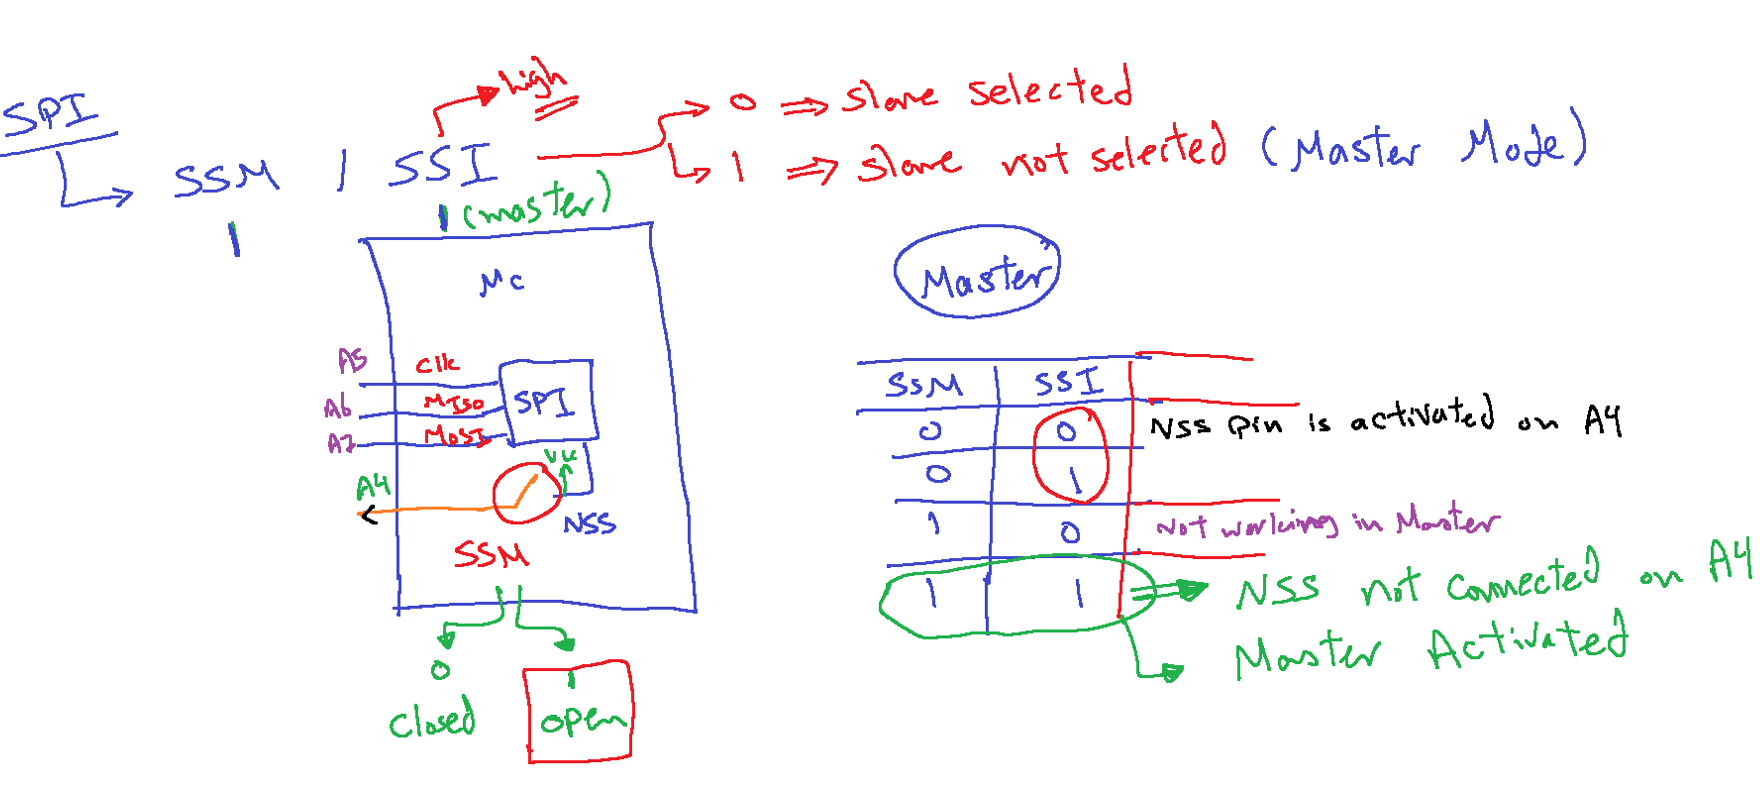 SPI
SSM / SSI
high
0 ⇒ slave selected
1 ⇒ slave not selected (Master Mode)
1
1 (master)
Mc
A5 Clk
A6 MISO
A7 MOSI
SPI
Vcc
A4
NSS
SSM
0
closed
1
open
Master
SSM SSI
0 0
NSS pin is activated on A4
0 1
1 0 Not working in Master
1 1 ⇒ NSS not connected on A4
Master Activated